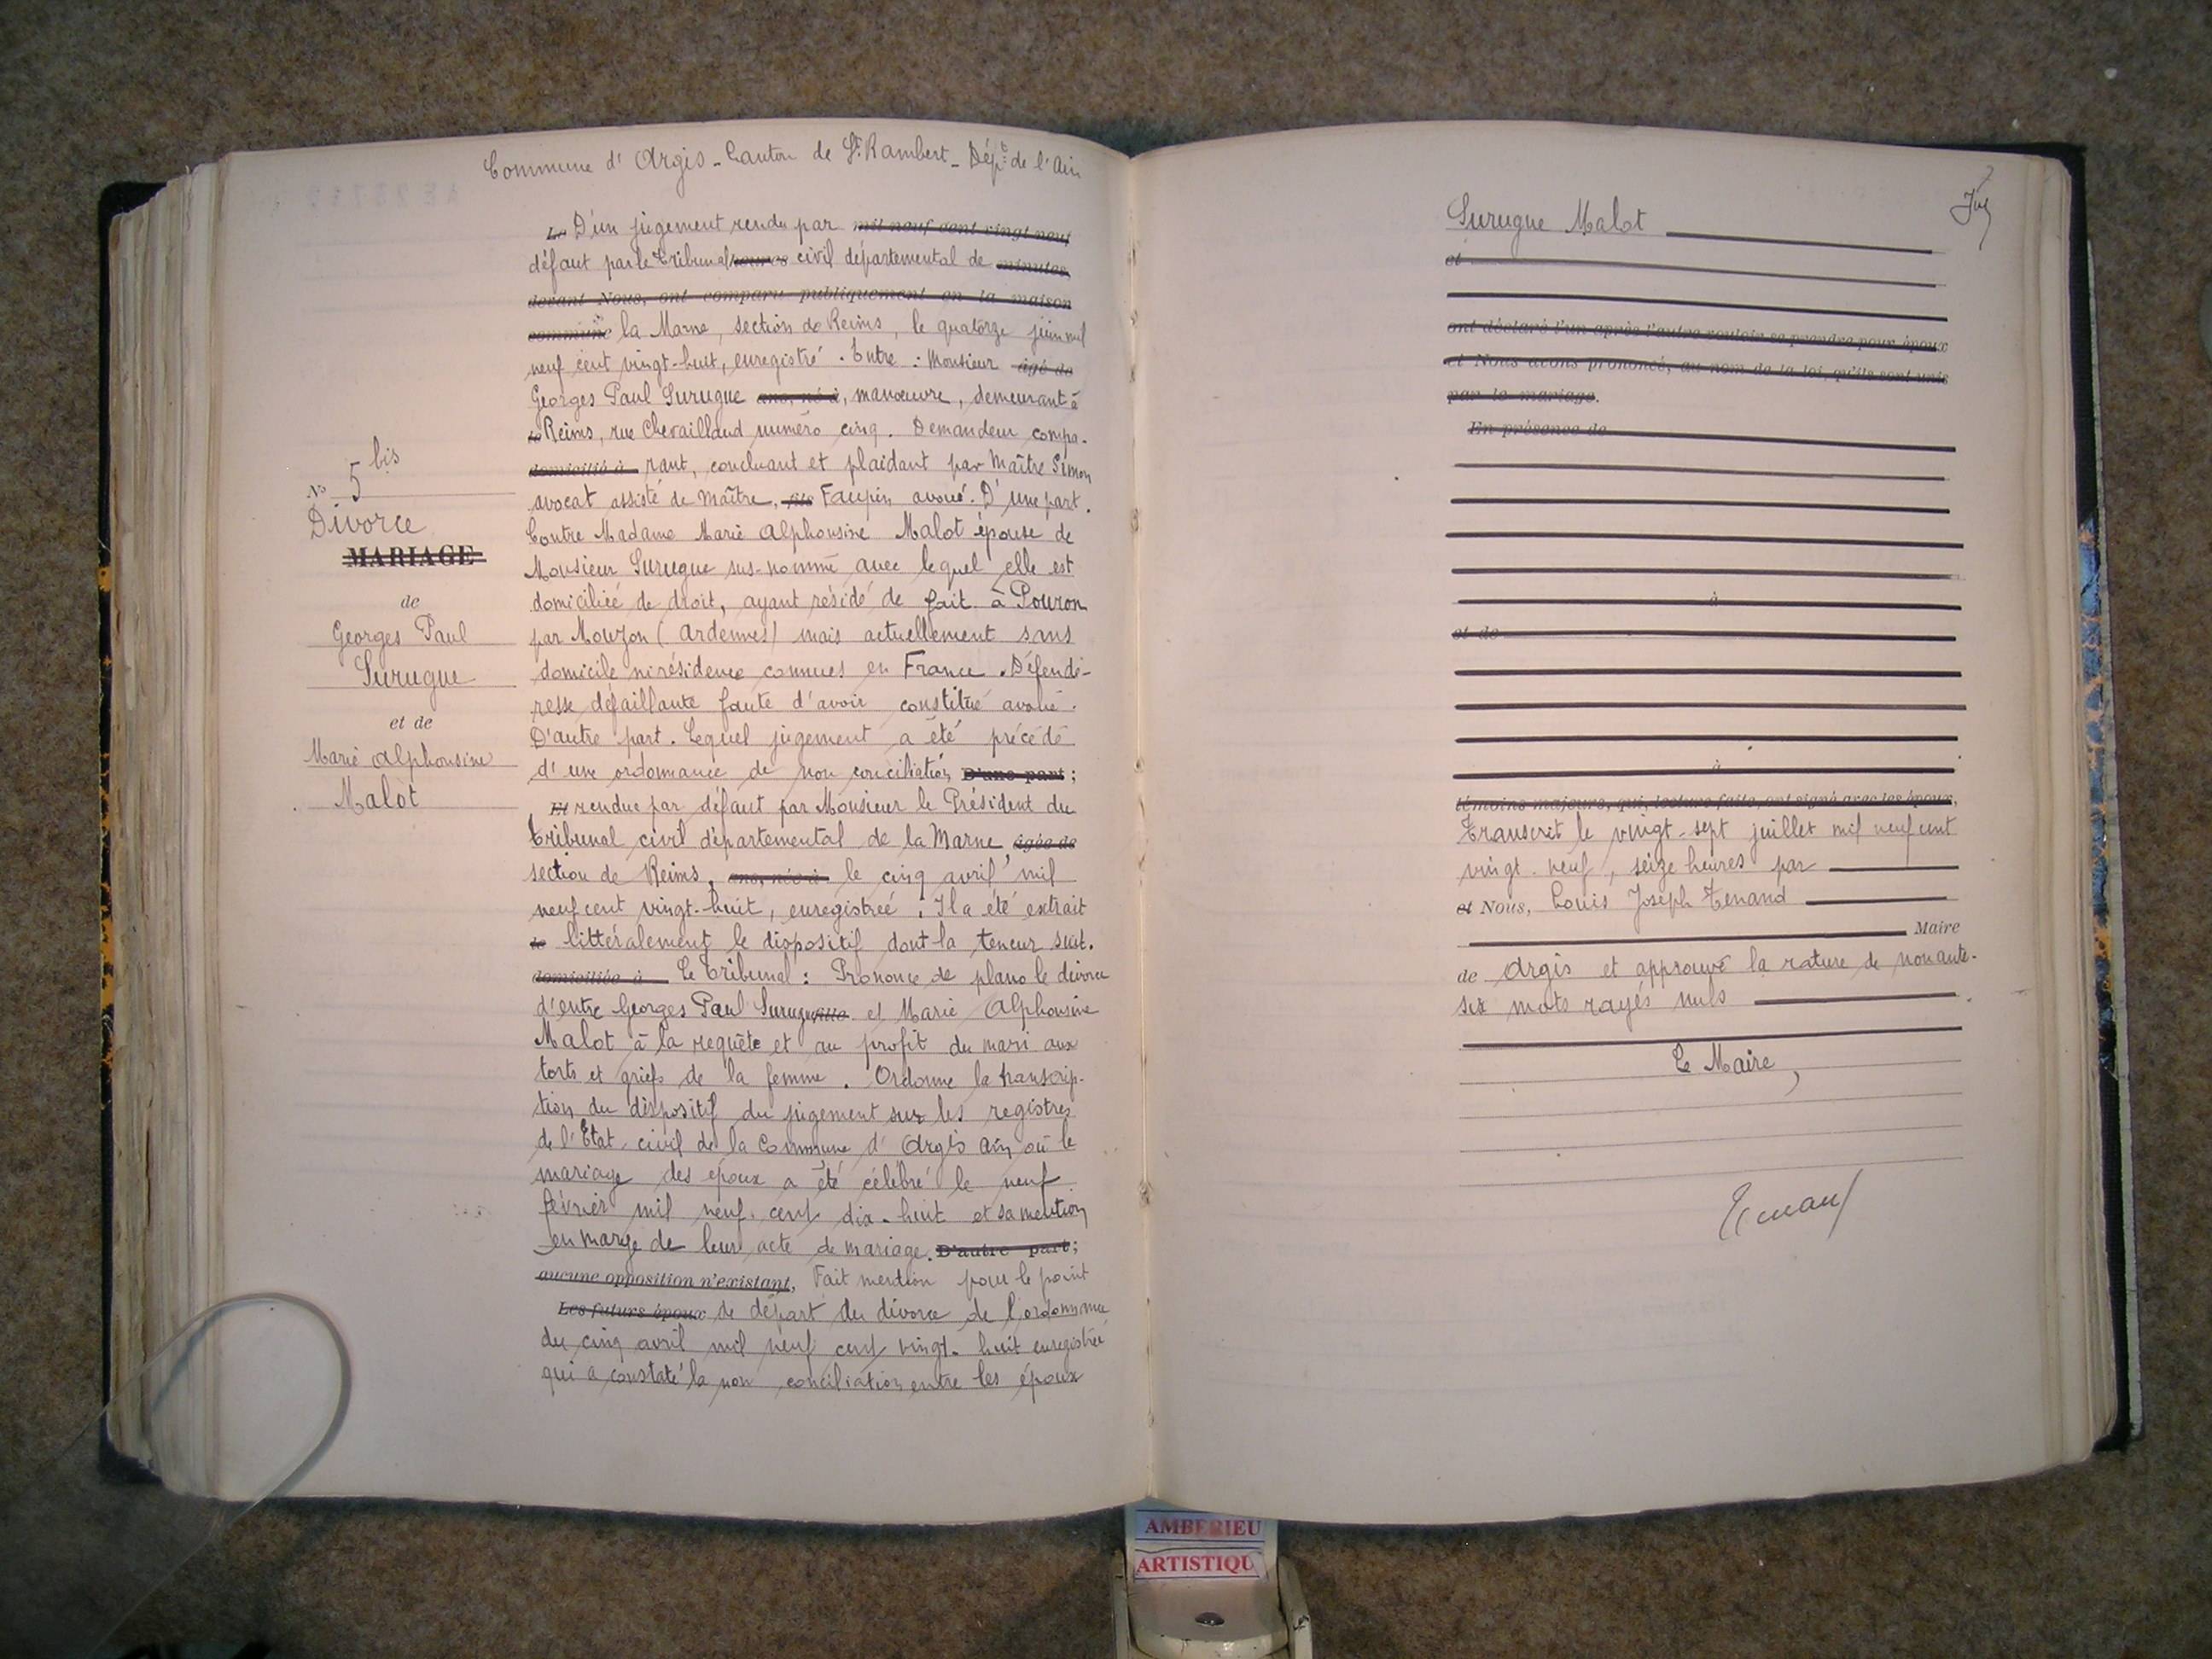 Commune d'Argis - Canton de St Rambert - Dépt de l'Ain
N° 5 bis
Divorce
MARIAGE
de
Georges Paul
Surugue
et de
Marie Alphonsine
Malot
Le D'un jugement rendu par mil neuf cent vingt neuf
défaut par le Tribunal heures civil départemental de minutes,
devant Nous, ont comparu publiquement en la maison
commune la Marne, section de Reims, le quatorze juin mil
neuf cent vingt-huit, enregistré. Entre : Monsieur âgé de
Georges Paul Surugue ans, né à, manœuvre, demeurant à
le Reims, rue Chevaillaud numéro cinq. Demandeur compa-
domicilié à rant, concluant et plaidant par Maître Simon
avocat assisté de Maître, fils Faupin avoué. D'une part.
Contre Madame Marie Alphonsine Malot épouse de
Monsieur Surugue sus-nommé avec lequel elle est
domiciliée de droit, ayant résidé de fait à Pouron
par Mouzon (Ardennes) mais actuellement sans
domicile ni résidence connues en France. Défende-
resse défaillante faute d'avoir constitué avoué.
D'autre part. Lequel jugement a été précédé
d'une ordonnance de non conciliation D'une part ;
Et rendue par défaut par Monsieur le Président du
Tribunal civil départemental de la Marne, âgée de
section de Reims, ans, née à le cinq avril mil
neuf cent vingt-huit, enregistrée. Il a été extrait
le littéralement le dispositif dont la teneur suit.
domiciliée à Le Tribunal : Prononce de plano le divorce
d'entre Georges Paul Surugue fille et Marie Alphonsine
Malot à la requête et au profit du mari aux
torts et griefs de la femme. Ordonne la transcrip-
tion du dispositif du jugement sur les registres
de l'Etat-civil de la Commune d'Argis Ain où le
mariage des époux a été célébré le neuf
février mil neuf cent dix-huit et sa mention
en marge de leur acte de mariage. D'autre part ;
aucune opposition n'existant, Fait mention pour le point
Les futurs époux de départ du divorce de l'ordonnance
du cinq avril mil neuf cent vingt-huit enregistrée
qui a constaté la non conciliation entre les époux
7
Surugue Malot
et
ont déclaré l'un après l'autre vouloir se prendre pour époux
et Nous avons prononcé, au nom de la loi, qu'ils sont unis
par le mariage.
En présence de
à
et de
à
témoins majeurs, qui, lecture faite, ont signé avec les époux,
Transcrit le vingt-sept juillet mil neuf cent
vingt-neuf, seize heures par
et Nous, Louis Joseph Tenand
Maire
de Argis et approuvé la rature de nonante-
six mots rayés nuls
Le Maire,
Tenand
AMBERIEU
ARTISTIQU